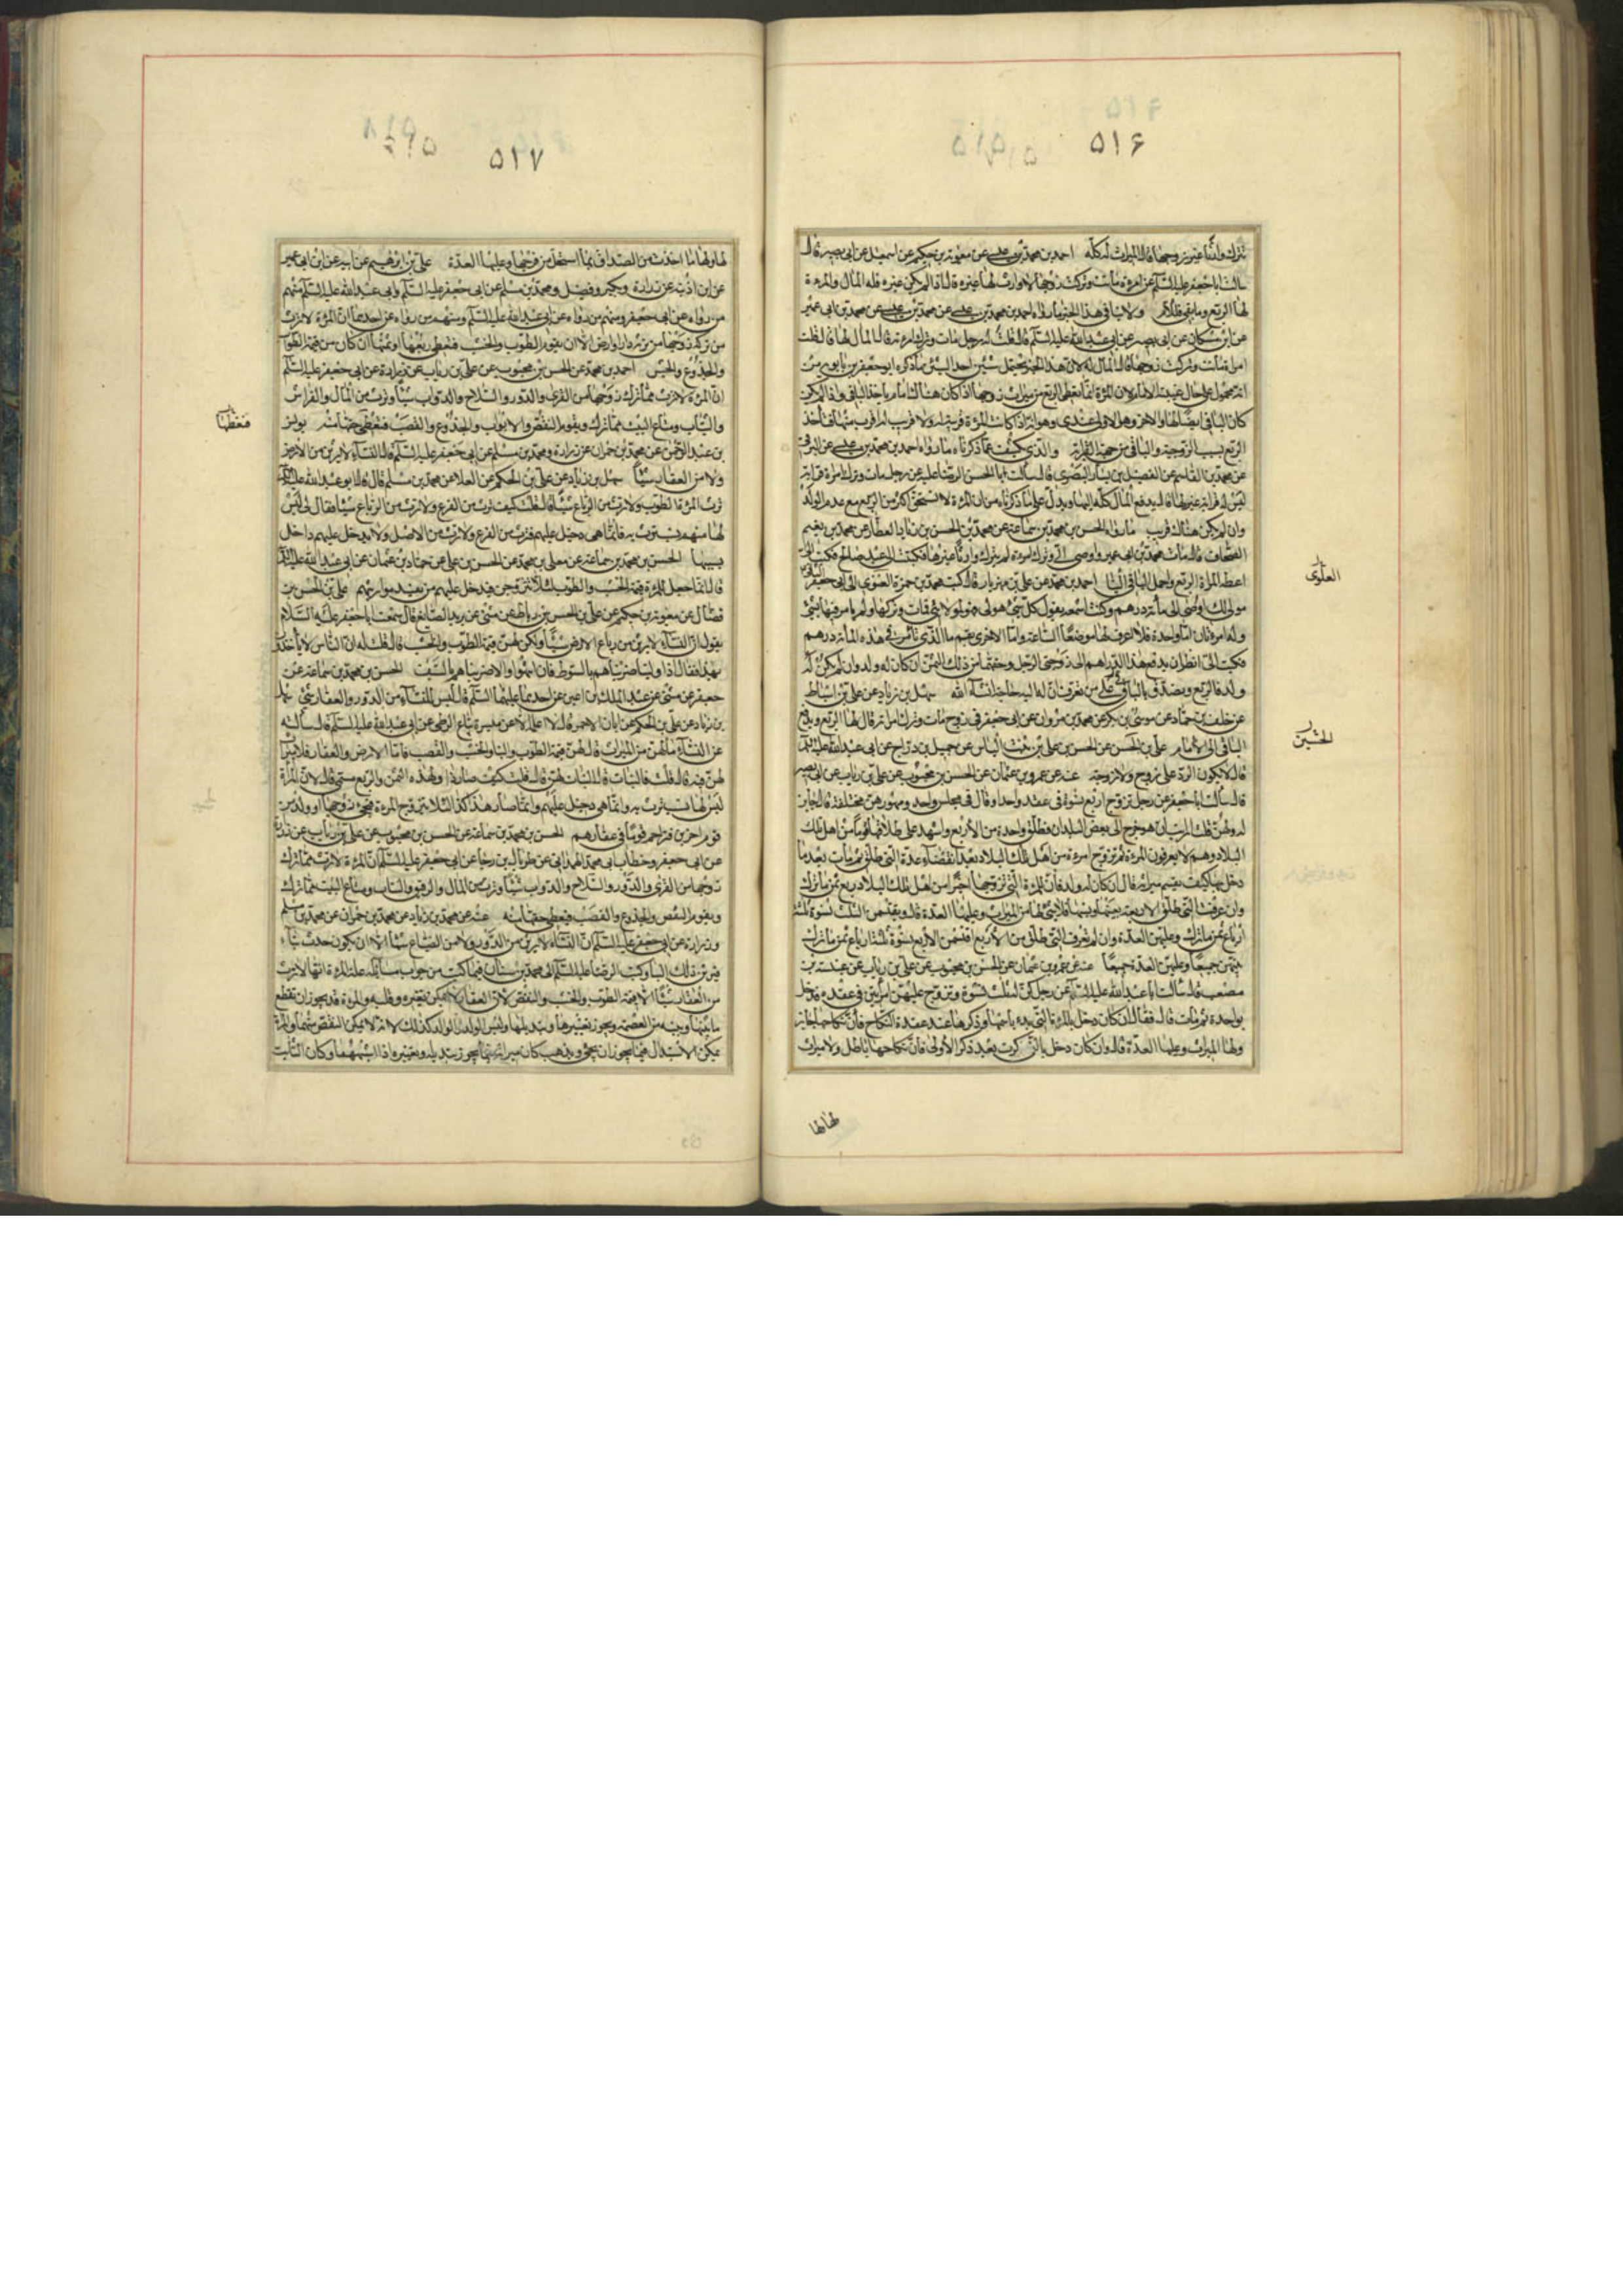 ۵۱۶
تترك وارثا غير زوجها قال الميراث له كله احمد بن محمد بن عيسى عن معوية بن حكيم عن اسمعيل عن ابى بصير قال
سالت ابا جعفر عليه السلم عن امرءة ماتت وتركت زوجها لا وارث لها غيره قال اذا لم يكن غيره فله المال والمرءة
لها الربع وما بقى فللامام ولا ينافى هذا الخبر ما رواه احمد بن محمد بن عيسى عن محمد بن عيسى عن محمد بن ابى عمير
عن ابن مسكان عن ابى بصير عن ابى عبد الله عليه السلم قال قلت له رجل مات وترك امرءته قال المال لها قال قلت
امراة ماتت وتركت زوجها قال المال له لان هذا الخبر يحتمل شيئين احد الشيئين ما ذكره ابو جعفر بن بابويه من
انه محمول على حال غيبة الامام لان المرءة انما تعطى الربع من ميراث زوجها اذا كان هناك امام ياخذ الباقى واذا لم يكن
كان الباقى ايضا لها والاخر وهو الاولى عندى وهو انه اذا كانت المرءة قريبة له ولا قريب له اقرب منها فتأخذ
الربع بسبب الزوجية والباقى من جهة القرابة والذى يكشف عما ذكرناه ما رواه احمد بن محمد بن عيسى عن البرقى
عن محمد بن القاسم عن الفضيل بن يسار البصرى قال سالت ابا الحسن الرضا عليه عن رجل مات وترك امرءة قرابة
ليس له قرابة غيرها قال يدفع المال كله اليها ويدل على ما ذكرناه من ان المرءة لا تستحق اكثر من الربع مع عدم الولد
وان لم يكن هناك قريب ما رواه الحسن بن محمد بن سماعة عن محمد بن الحسن بن زياد العطار عن محمد بن نعيم
الصحاف قال مات محمد بن ابى عمير واوصى الى وترك امرءة لم يترك وارثا غيرها فكتبت الى عبد صالح فكتب الى
اعط المراة الربع واحمل الباقى الينا احمد بن محمد عن على بن مهزيار قال كتب محمد بن حمزة العلوى الى ابى جعفر الثانى
مولى لك اوصى الى بمائة درهم وكنت اسمعه يقول كل شئ هو لى فهو لمولاى فمات وتركها ولم يامر فيها بشئ
وله امرءتان اما واحدة فلا اعرف لها موضعا الساعة واما الاخرى بقم ما الذى تأمر فى هذه المائة درهم
فكتب الى انظر ان يدفع هذا الدراهم الى زوجتى الرجل وحقهما من ذلك الثمن ان كان له ولد وان لم يكن له
ولد فالربع ويصدق بالباقى على من تعرف ان له اليه حاجة انشاء الله سهل بن زياد عن على بن اسباط
عن خلف بن حماد عن موسى بن بكر عن محمد بن مروان عن ابى جعفر فى زوج مات وترك امراته قال لها الربع ويدفع
الباقى الى الامام على بن الحسن عن الحسن بن على بن بنت الياس عن جميل بن دراج عن ابى عبد الله عليه السلم
قال لا يكون الرد على زوج ولا زوجة عنه عن عمرو بن عثمان عن الحسن بن محبوب عن على بن رياب عن ابى بصير
قال سالت ابا جعفر عن رجل تزوج اربع نسوة فى عقد واحد او قال فى مجلس واحد ومهورهن مختلفة قال جايز
له ولهن قلت ارايت ان هو خرج الى بعض البلدان فطلق واحدة من الاربع واشهد على طلاقها قوما من اهل تلك
البلاد وهم لا يعرفون المرءة ثم تزوج امرءة من اهل تلك البلاد بعد انقضاء عدة التى طلق ثم مات بعد ما
دخل بها كيف يقسم ميراثه قال ان كان له ولد فان للمرءة التى تزوجها اخيرا من اهل تلك البلاد ربع ثمن ما ترك
وان عرفت التى طلق من الاربعة بعينها ونسبها فلا شئ لها من الميراث وعليها العدة قال ويقتسمن الثلث نسوة ثلثة
ارباع ثمن ما ترك وعليهن العدة وان لم تعرف التى طلق من الاربع اقتسمن الاربع نسوة ثلثة ارباع ثمن ما ترك
بينهن جميعا وعليهن العدة جميعا عنه عن عمرو بن عثمان عن الحسن بن محبوب عن على بن رياب عن عنبسة بن
مصعب قال سالت ابا عبد الله عليه السلم عن رجل كن له ثلث نسوة وتزوج عليهن امرءتين فى عقدة فدخل
بواحدة ثم مات قال فقال ان كان دخل بالمرءة التى بدء باسمها وذكرها عند عقدة النكاح فان نكاحها جايز
ولها الميراث وعليها العدة قال وان كان دخل بالتى ذكرت بعد ذكر الاولى فان نكاحها باطل ولا ميراث
العلوى
الحسين
لها ولها
۵۱۷
لها ولها ما اخذت من الصداق بما استحل من فرجها وعليها العدة على بن ابرهيم عن ابيه عن ابن ابى عمير
عن ابن اذينه عن زرارة وبكير وفضيل ومحمد بن مسلم عن ابى جعفر عليه السلم وابى عبد الله عليه السلم منهم
من رواه عن ابى جعفر ومنهم من رواه عن ابى عبد الله عليه السلم ومنهم من رواه عن احدهما ان المرءة لا ترث
من تركة زوجها من تربة دار او ارض الا ان يقوم الطوب والخشب فتعطى ربعها او ثمنها ان كان من قيمة الطوب
والجذوع والخشب احمد بن محمد عن الحسن بن محبوب عن على بن رياب عن زرارة عن ابى جعفر عليه السلم
ان المرءة لا ترث مما ترك زوجها من القرى والدور والسلاح والدواب شيئا وترث من المال والفراش
والثياب ومتاع البيت مما ترك ويقوم النقض والابواب والجذوع والقصب فتعطى حقها منه يونس
بن عبد الرحمن عن محمد بن حمران عن زرارة ومحمد بن مسلم عن ابى جعفر عليه السلم قال النساء لا يرثن من الارض
ولا من العقار شيئا سهل بن زياد عن على بن الحكم عن العلا عن محمد بن مسلم قال قال ابو عبد الله عليه السلم
ترث المرءة الطوب ولا ترث من الرباع شيئا قال قلت كيف ترث من الفرع ولا ترث من الرباع شيئا فقال لى ليس
لها منهم نسب ترث به فانما هى دخيل عليهم فترث من الفرع ولا ترث من الاصل ولا يدخل عليهم داخل
بسببها الحسن بن محمد بن سماعة عن معلى بن محمد عن الحسن بن على عن حماد بن عثمان عن ابى عبد الله عليه السلم
قال انما جعل للمرءة قيمة الخشب والطوب لئلا تتزوجن فيدخل عليهم من يفسد مواريثهم على بن الحسن بن
فضال عن معوية بن حكيم عن على بن الحسن بن رباط عن مثنى عن يزيد الصائغ قال سمعت ابا جعفر عليه السلام
يقول ان النساء لا يرثن من رباع الارض شيئا ولكن لهن قيمة الطوب والخشب قال قلت له ان الناس لا ياخذون
بهذا فقال اذا ولينا ضربناهم بالسوط فان انتهوا والا ضربناهم بالسيف الحسن بن محمد بن سماعة عن
جعفر عن مثنى عن عبد الملك بن اعين عن احدهما عليهما السلم قال ليس للنساء من الدور والعقار شئ سهل
بن زياد عن على بن الحكم عن ابان الاحمر قال لا اعلمه الا عن ميسرة بياع الزطى عن ابى عبد الله عليه السلم قال سالته
عن النساء ما لهن من الميراث قال لهن قيمة الطوب والبناء والخشب والقصب فاما الارض والعقار فلا ميراث
لهن فيه قال قلت فالبنات قال البنات لهن قال قلت كيف صار ذا ولهذه الثمن والربع مسمى قال لان المرأة
ليس لها نسب ترث به وانما هى دخيل عليهم وانما صار هذا كذا لئلا تتزوج المرءة فيجئ زوجها او ولد من
قوم اخرين فيزاحم قوما فى عقارهم الحسن بن محمد بن سماعة عن الحسن بن محبوب عن على بن رئاب عن زرارة
عن ابى جعفر وخطاب ابى محمد الهمدانى عن طربال بن رجا عن ابى جعفر عليه السلم ان المرءة لا ترث مما ترك
زوجها من القرى والدور والسلاح والدواب شيئا وترث من المال والرقيق والثياب ومتاع البيت مما ترك
ويقوم النقض والجذوع والقصب فتعطى حقها منه عنه عن محمد بن زياد عن محمد بن حمران عن محمد بن مسلم
وزرارة عن ابى جعفر عليه السلم ان النساء لا يرثن من الدور ولا من الضياع شيئا الا ان يكون احدث بناء
فيرثن ذلك البناء وكتب الرضا عليه السلم الى محمد بن سنان فيما كتب من جواب مسائله علة المرءة انها لا ترث
من العقار شيئا الا قيمة الطوب والخشب والنقض لان العقار لا يمكن تغييره وقلبه والمرءة قد يجوز ان تقطع
ما بينها وبينه من العصمة ويجوز تغييرها وتبديلها وليس الولد والوالد كذلك لانه لا يمكن التفصى منهما والمرءة
يمكن الاستبدال بها فما يجوز ان يجئ ويذهب كان ميراثه فيما يجوز تبديله وتغييره اذا اشبههما وكان الثابت
فتعطها